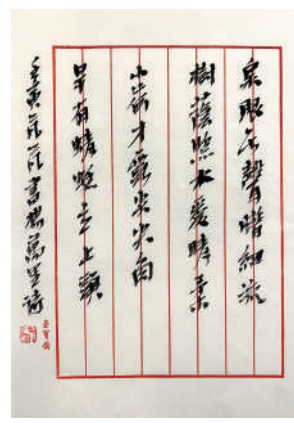 泉眼无聲惜細流
樹蔭照水愛晴柔
小荷才露尖尖角
早有蜻蜓立上頭
壬寅書楊萬里詩